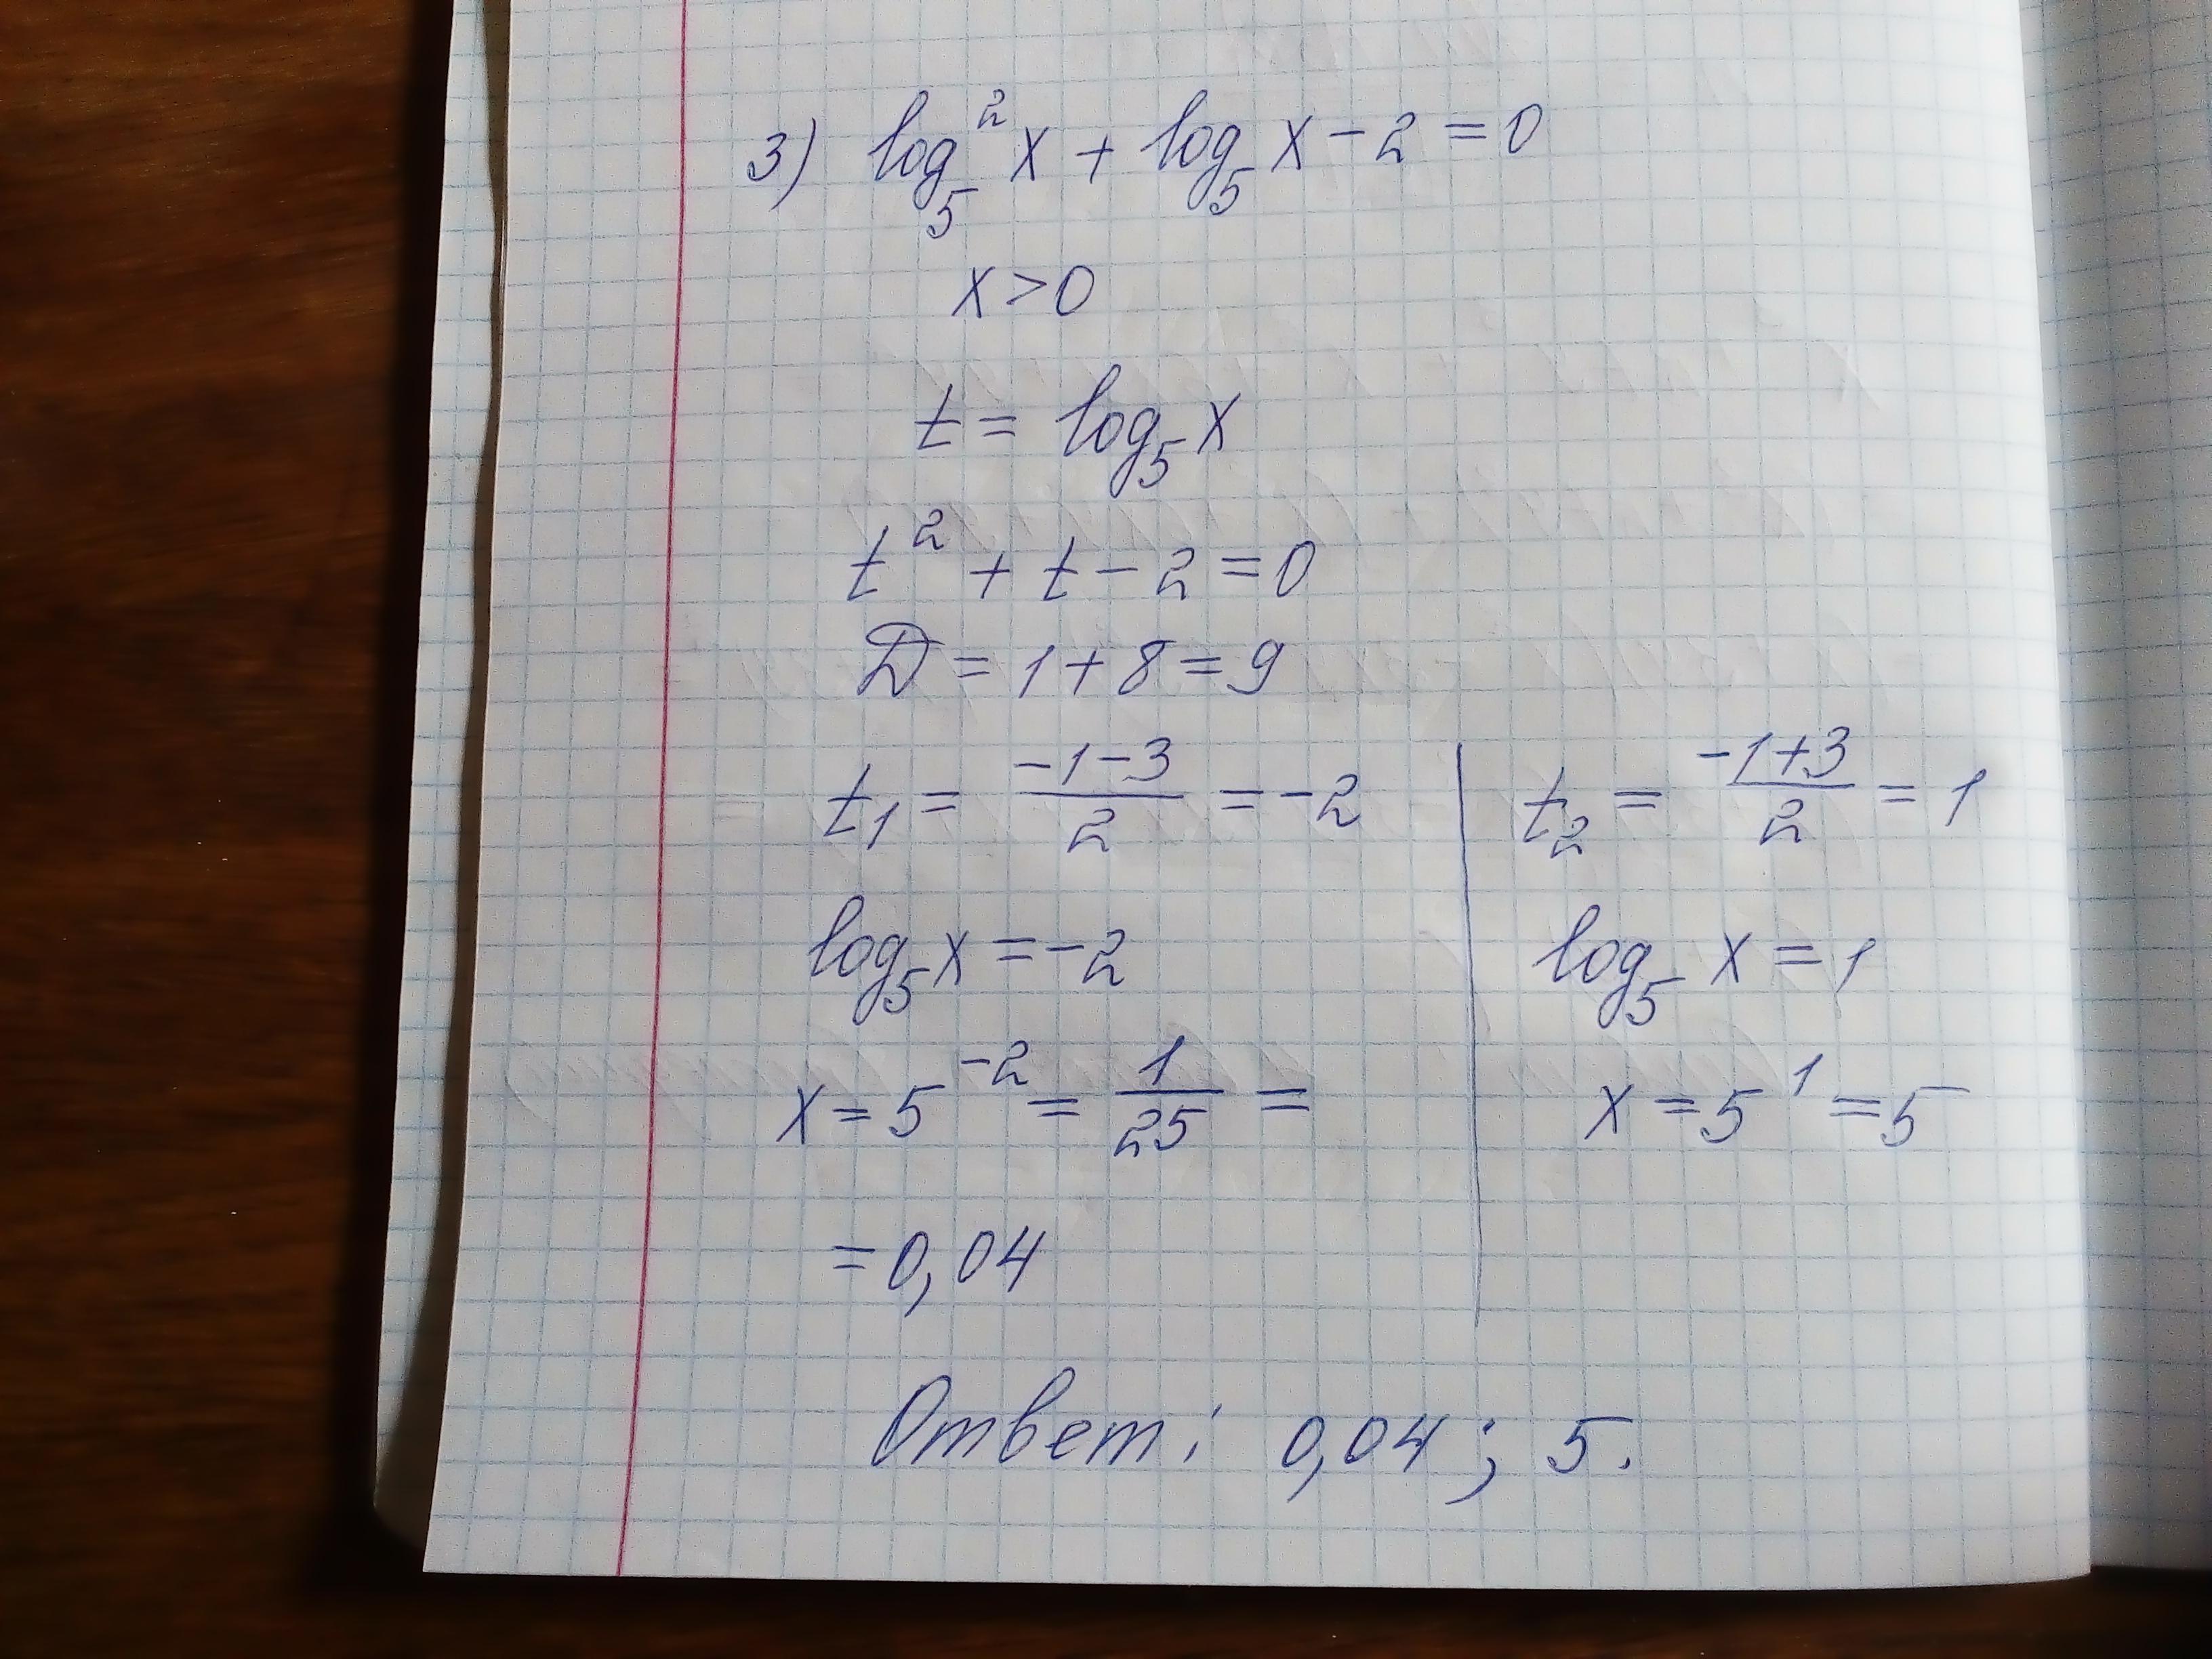 3) log₅² x + log₅ x − 2 = 0
x > 0
t = log₅ x
t² + t − 2 = 0
D = 1 + 8 = 9
t₁ = (−1−3)/2 = −2
log₅ x = −2
x = 5⁻² = 1/25 =
= 0,04
t₂ = (−1+3)/2 = 1
log₅ x = 1
x = 5¹ = 5
Ответ: 0,04; 5.